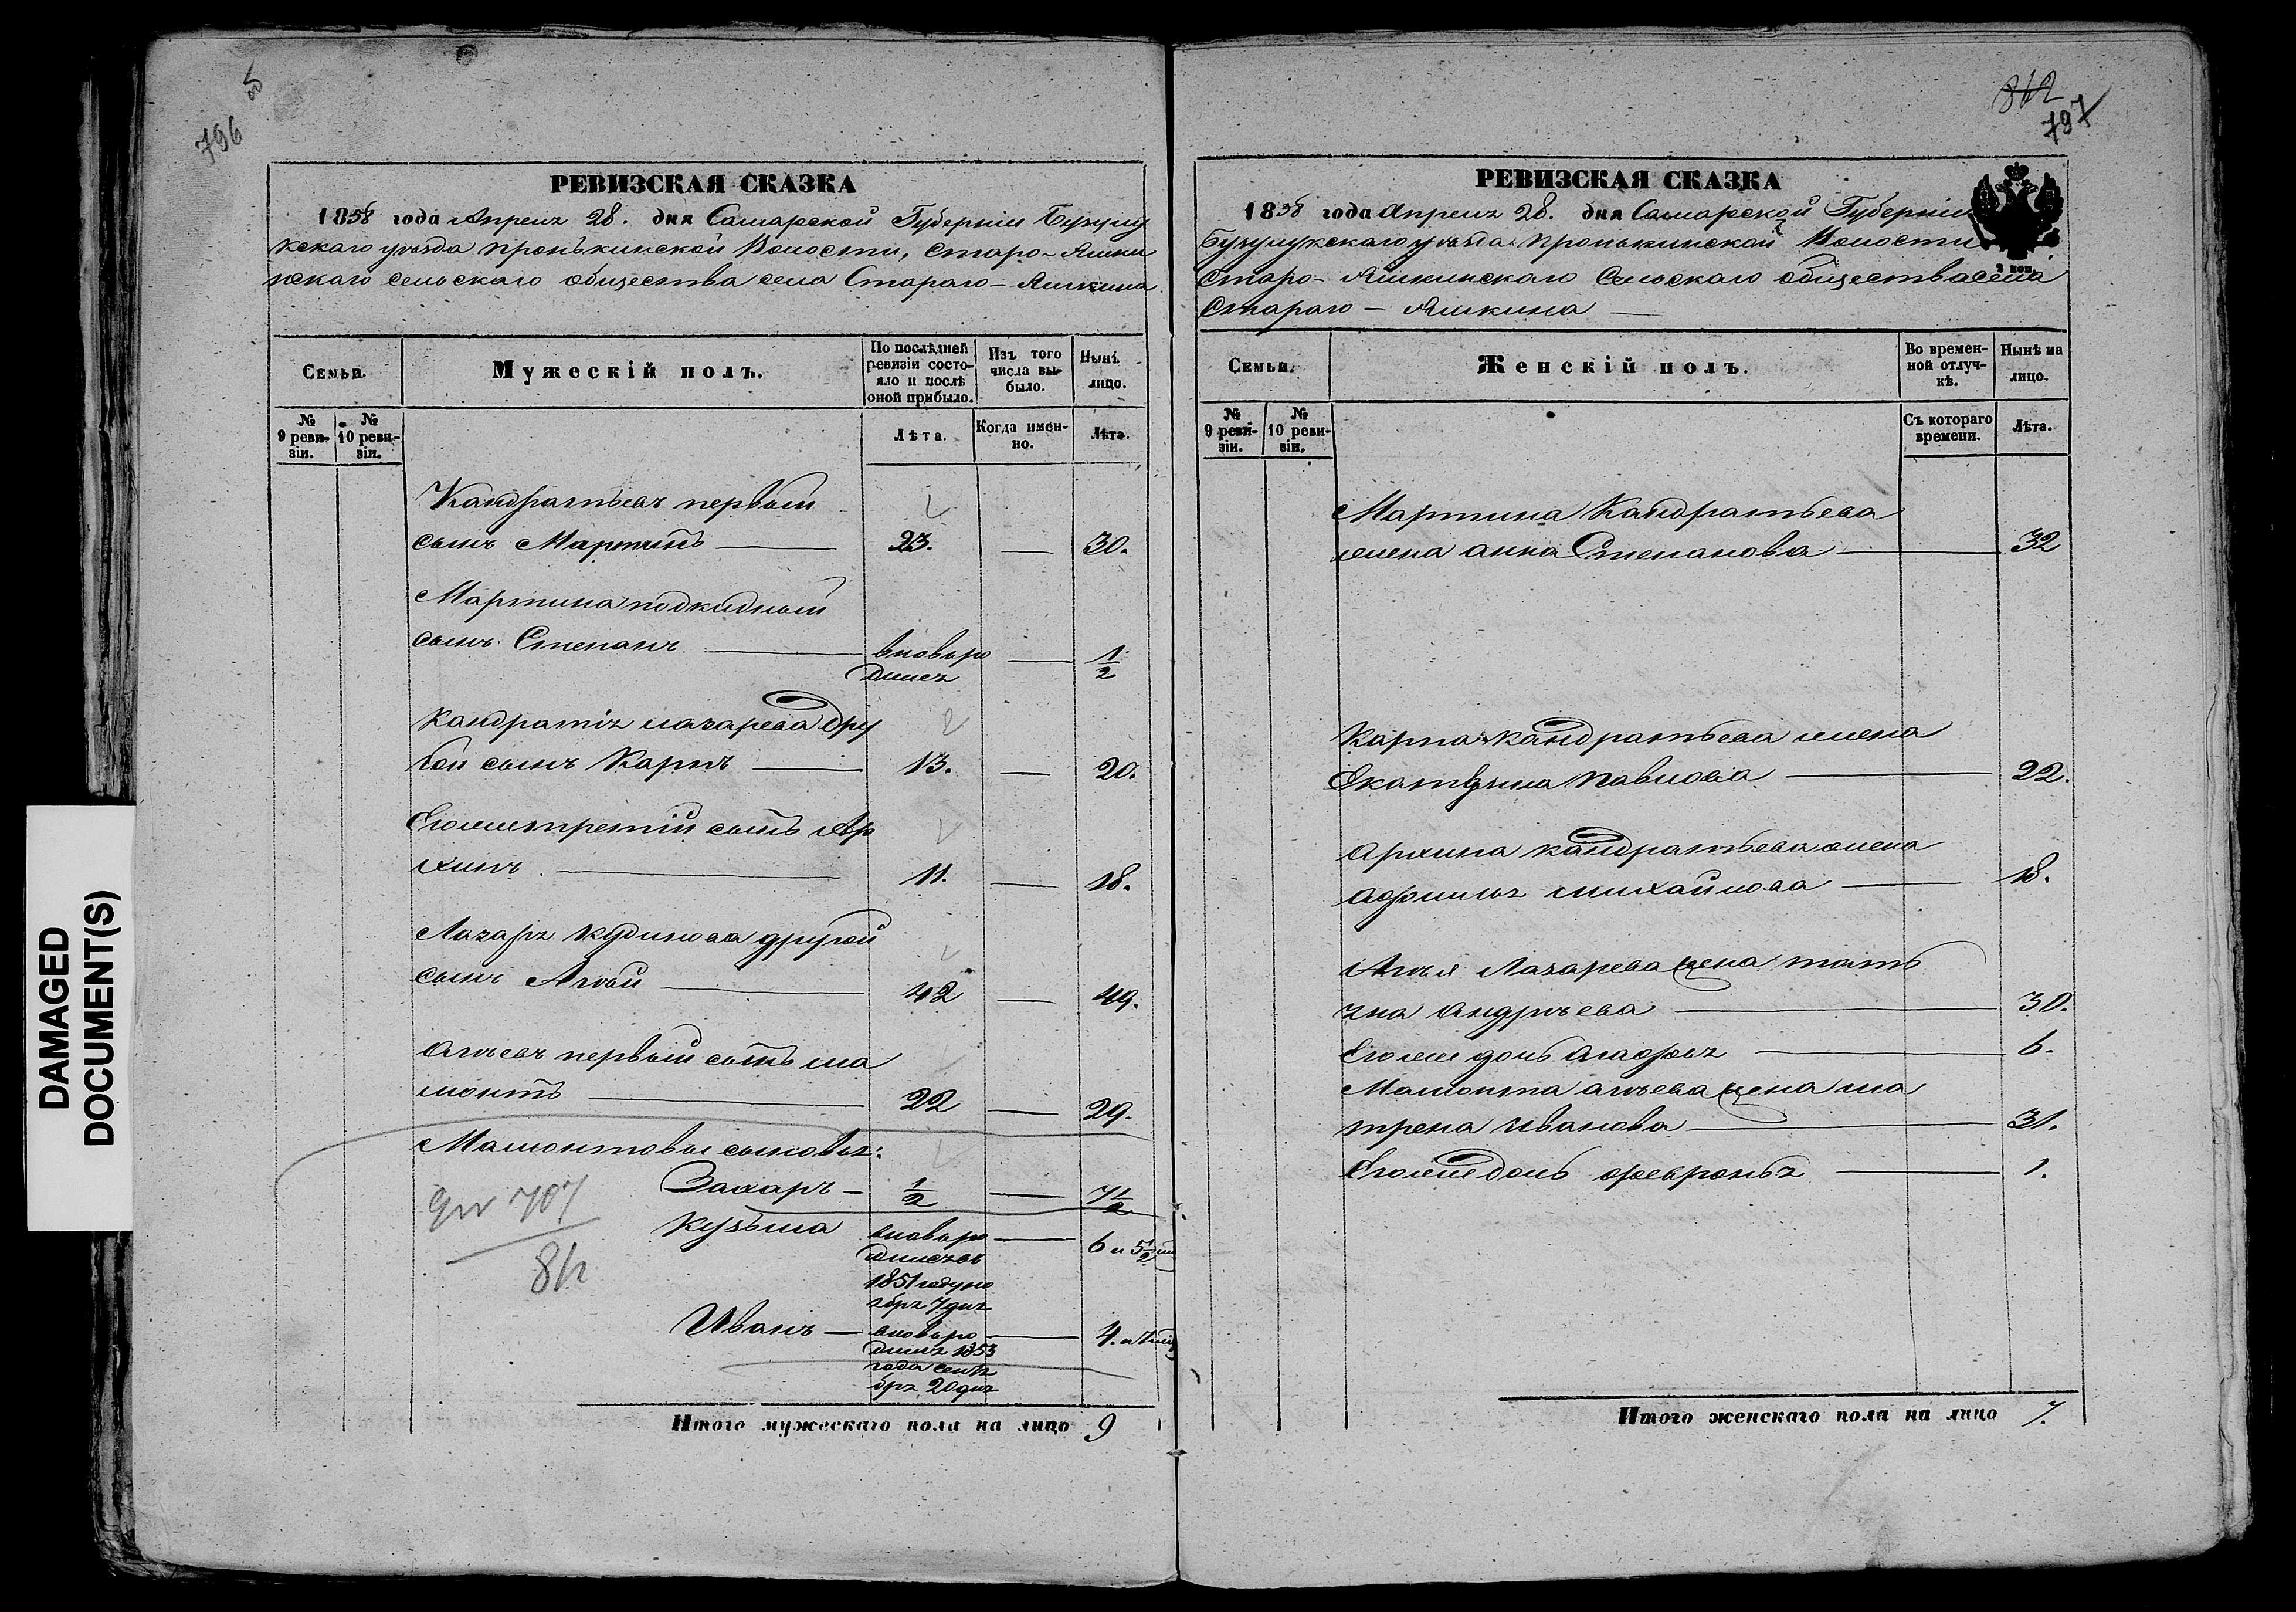 DAMAGED
DOCUMENT(S)
796
РЕВИЗСКАЯ СКАЗКА
1858 года Апреля 28. дня Самарской Губернiи Бузулу
кского уѣзда Пронькинской Волости, Старо-Яшки
нскаго сельскаго общества села Стараго-Яшкина
Семьи.
Мужескiй полъ.
По послѣдней
ревизiи состо-
яло и послѣ
оной прибыло.
Изъ того
числа вы-
было.
Нынѣ
лицо.
№
9 реви-
зiи.
№
10 реви-
зiи.
Лѣта.
Когда имен-
но.
Лѣта.
Кандратьевъ первый
сынъ Мартинъ 23. 30.
Мартина подкидный
сынъ Степанъ вновьро 1/2
дился
Кандратiя Лазарева дру
гой сынъ Карпъ 13. 20.
Его же третiй сынъ Ар
хипъ 11. 18.
Лазаря Кудинова другой
сынъ Агѣй 42 49.
Агѣевъ первый сынъ Ма
монтъ 22 29.
Мамонтовы сыновья:
Захаръ 1/2 7 1/2
Кузьма вновьро 6 и 5 1/2 м
дился въ
1851 году но
ября 7 дня
Иванъ вновьро 4. и 7 мѣ
дился 1853
года сентя
бря 20 дня
707
Итого мужескаго пола на лицо 9
862
797
РЕВИЗСКАЯ СКАЗКА
1858 года Апреля 28. дня Самарской Губернiи
Бузулукскаго уѣзда Пронькинской Волости
Старо-Яшкинскаго Сельскаго общества села
Стараго-Яшкина
Семьи.
Женскiй полъ.
Во времен-
ной отлуч-
кѣ.
Нынѣ на
лицо.
№
9 реви-
зiи.
№
10 реви-
зiи.
Съ котораго
времени.
Лѣта.
Мартина Кандратьева
жена Анна Степанова 32
Карпа Кандратьева жена
Екатерина Павлова 22.
Архипа Кандратьева жена
Афимья Михайлова 18.
Агѣя Лазарева жена Тать
яна Андрѣева 30.
Его же дочь Агафья 6.
Мамонта Агѣева жена Ма
трена Иванова 31.
Его же дочь Февронья 1.
Итого женскаго пола на лицо 7.